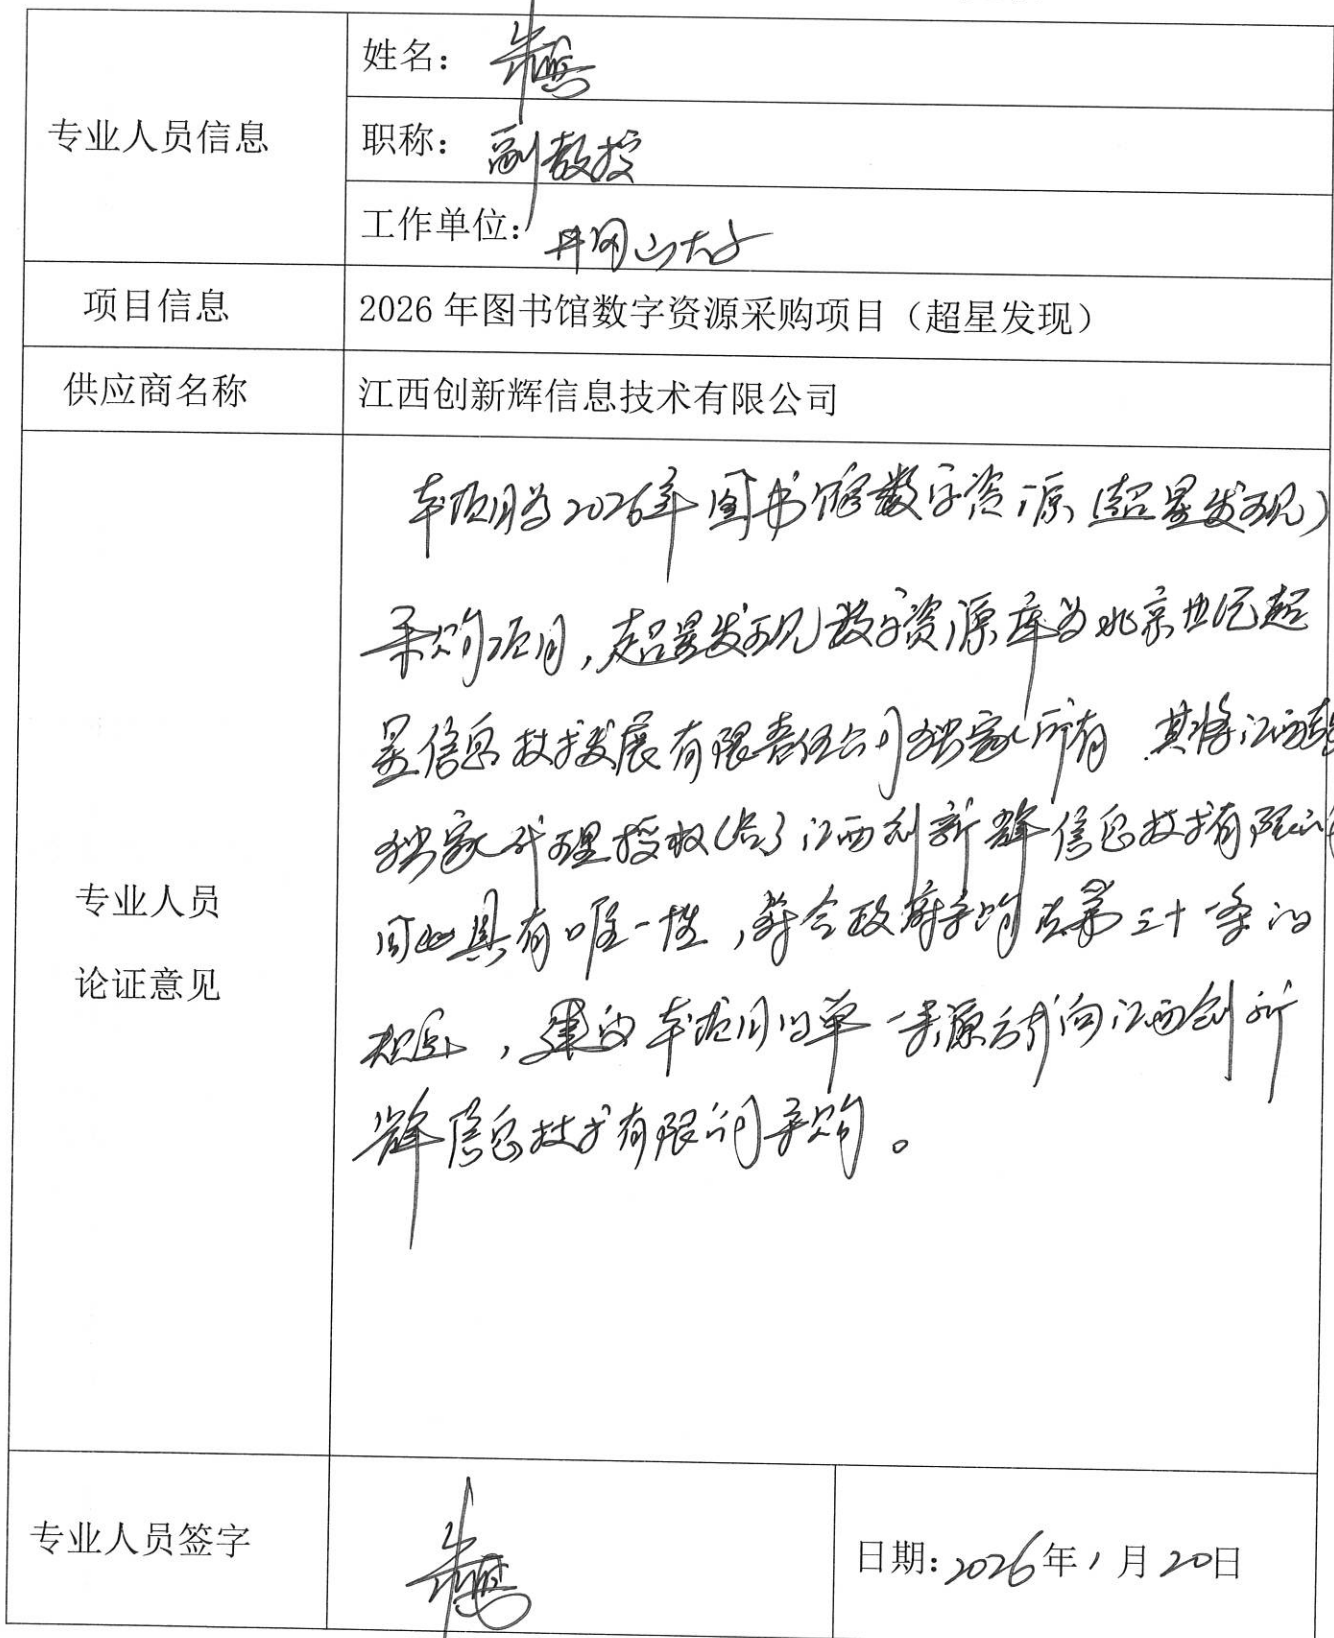 姓名：
专业人员信息
职称：副教授
工作单位：井冈山大学
项目信息 2026年图书馆数字资源采购项目（超星发现）
供应商名称 江西创新辉信息技术有限公司
本项目为2026年图书馆数字资源（超星发现）
采购项目，超星发现数字资源库为北京世纪超
星信息技术发展有限责任公司独家所有 其将江西
独家代理授权给了江西创新辉信息技术有限公司
因此具有唯一性，符合政府采购法第三十一条的
规定，建议本项目以单一来源方式向江西创新
辉信息技术有限公司采购。
专业人员
论证意见
专业人员签字
日期：2026年1月20日